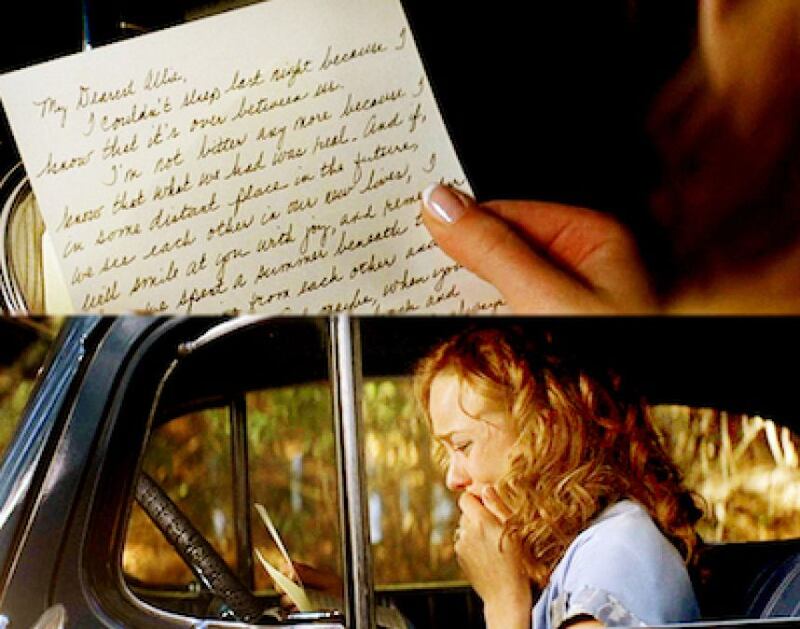 My Dearest Allie,
I couldn't sleep last night because I
know that it's over between us.
I'm not bitter any more because I
know that what we had was real. And if,
in some distant place in the future,
we see each other in our new lives, I
will smile at you with joy, and remember
we spent a summer beneath
from each other and
maybe, when you
back and
always